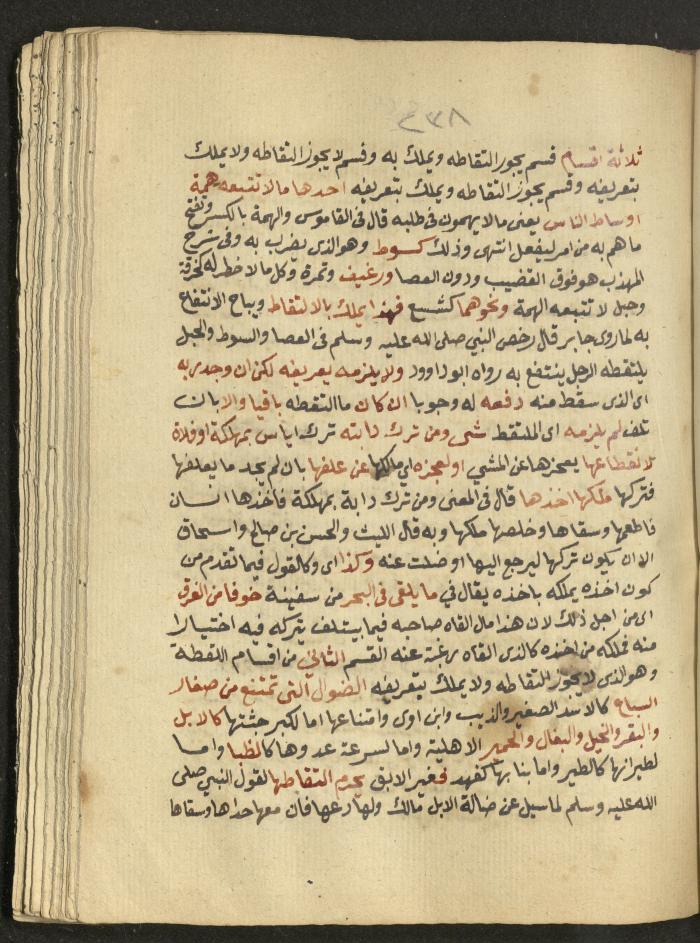 ٤٣٨
ثلاثة اقسام قسم يجوز التقاطه ويملك به وقسم لا يجوز التقاطه ولا يملك
بتعريفه وقسم يجوز التقاطه ويملك بتعريفه احدها ما لا تتبعه همة
اوساط الناس يعنى ما لا يهمون فى طلبه قال فى القاموس والهمة بالكسر وتفتح
ما هم به من امر ليفعل انتهى وذلك كسوط وهو الذى يضرب به وفى شرح
المهذب هو فوق القضيب ودون العصا ورغيف وتمرة وكل ما لا خطر له كخرقة
وحبل لا تتبعه الهمة ونحوهما كشسع فهذا يملك بالالتقاط ويباح الانتفاع
به لما روى جابر قال رخص النبي صلى الله عليه وسلم فى العصا والسوط والحبل
يلتقطه الرجل ينتفع به رواه ابو داوود ولا يلزمه يعريفه لكن ان وجد ربه
اى الذى سقط منه دفعه له وجوبا ان كان ما التقطه باقيا والا بان
تلف لم يلزمه اى الملتقط شى ومن ترك دابته ترك اياس بمهلكة او فلاة
لانقطاعها بعجزها عن المشي او لعجزه اي مالكها عن علفها بان لم يجد ما يعلفها
فتركها ملكها اخذها قال فى المغنى ومن ترك دابة بمهلكة فاخذها انسان
فاطعمها وسقاها وخلصها ملكها وبه قال الليث والحسن بن صالح واسحاق
الا ان يكون تركها ليرجع اليها او ضلت عنه وكذا اى وكالقول فيما تقدم من
كون اخذه يملكه باخذه يقال في ما يلقى فى البحر من سفينة خوفا من الغرق
اى من اجل ذلك لان هذا مال القاه صاحبه فيما يتلف يتركه فيه اختيارا
منه فملكه من اخذه كالذى القاه رغبة عنه القسم الثاني من اقسام اللقطة
وهو الذى لا يجوز التقاطه ولا يملك بتعريفه الضوال التى تمتنع من صغار
السباع كالاسد الصغير والذيب وابن اوى وامتناعها اما لكبر جثتها كالابل
والبقر والخيل والبغال والحمير الاهلية واما لسرعة عدوها كالظبا واما
لطيرانها كالطير واما بنابها كفهد فغير الابق يحرم التقاطها لقول النبي صلى
الله عليه وسلم لما سيل عن ضالة الابل مالك ولها دعها فان معها حداها وسقاها